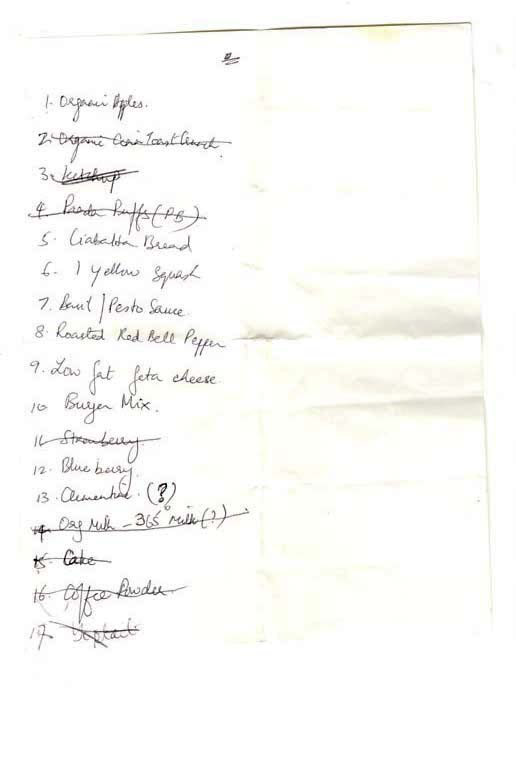 1. Organic Apples.
2. Organic Cinn Toast Crunch
3. Ketchup
4. Panda Puffs (PB)
5. Ciabatta Bread
6. 1 Yellow Squash
7. Basil / Pesto Sauce
8. Roasted Red Bell Pepper
9. Low fat feta cheese
10 Burger Mix.
11 Strawberry
12. Blueberry
13. Clementine. (?)
14 Org Milk - 365 Milk (?)
15. Cake
16. Coffee Powder
17.